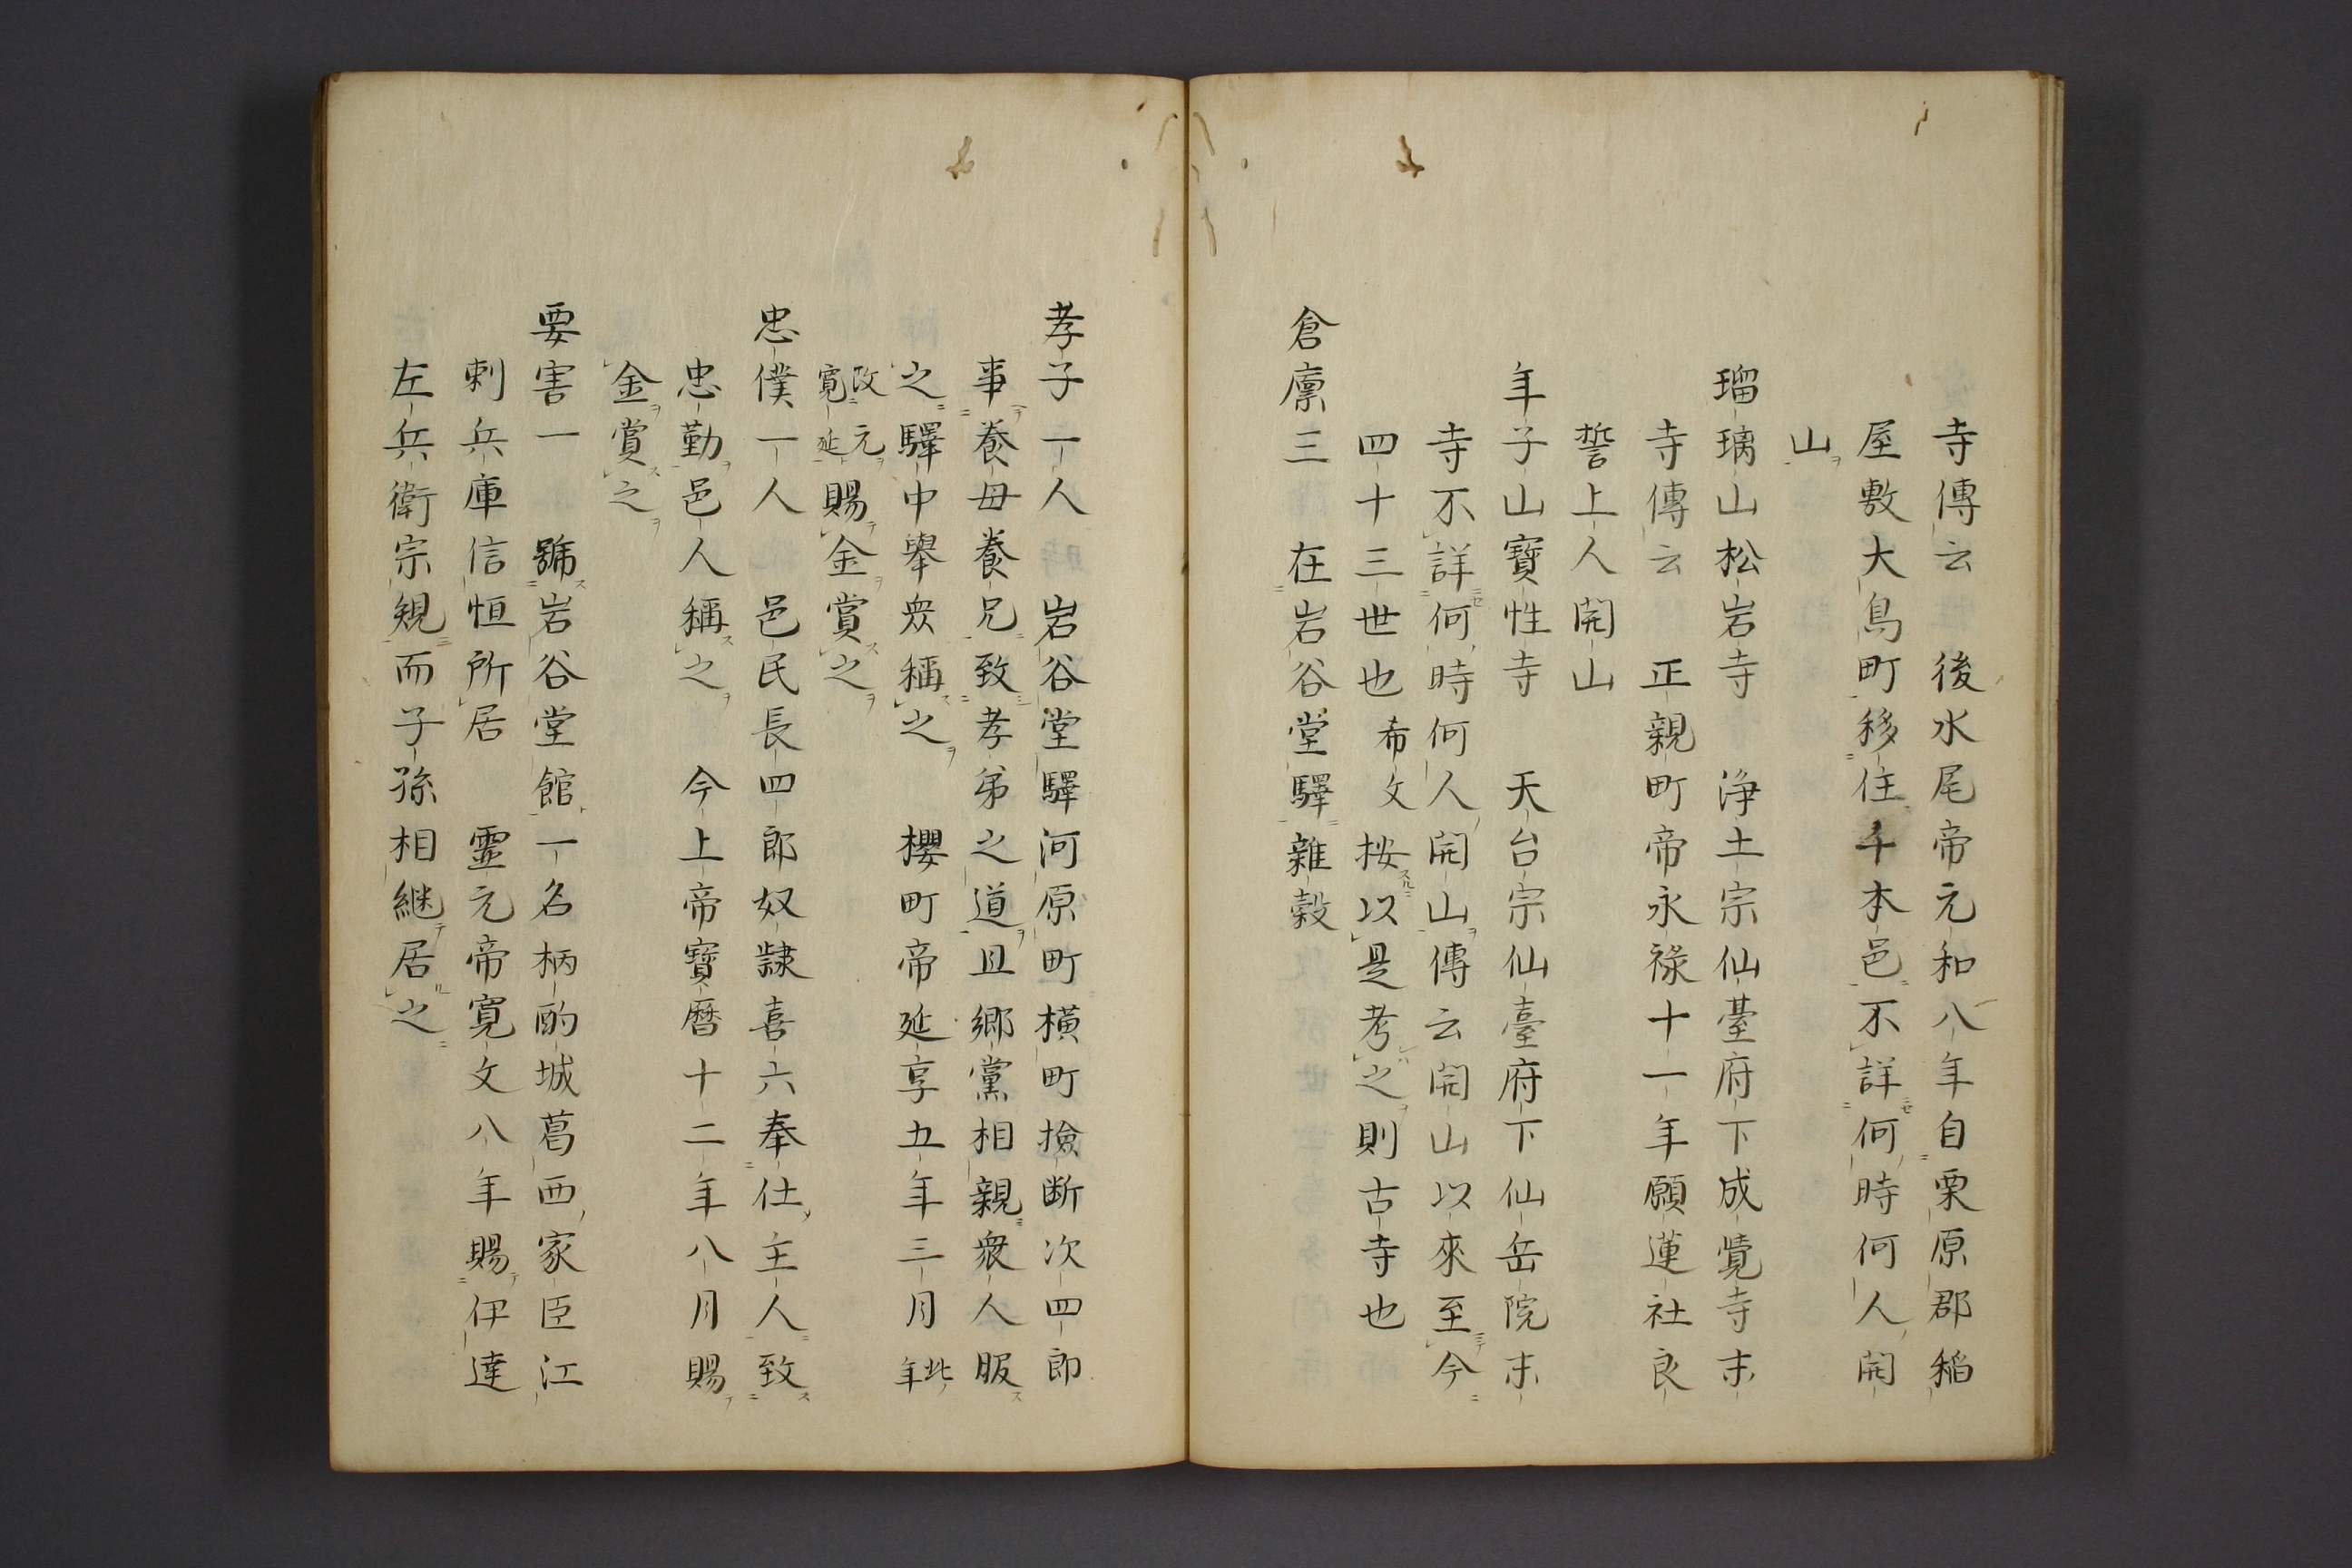 寺傳云　後水尾帝元和八年自栗原郡稲
屋敷大鳥町移住千本邑不詳何時何人開
山
瑠璃山松岩寺　浄土宗仙䑓府下成覺寺末
寺傳云　正親町帝永祿十一年願蓮社良
誓上人開山
年子山寶性寺　天台宗仙臺府下仙岳院末
寺不詳何時何人開山傳云開山以來至今
四十三世也希文按以是考之則古寺也
倉廪三　在岩谷堂驛雜穀
孝子一人　岩谷堂驛河原町横町撿断次四郎
事養母養兄致孝弟之道且郷黨相親衆人服
之驛中舉衆稱之　櫻町帝延享五年三月此年
改元寛延賜金賞之
忠僕一人　邑民長四郎奴隷喜六奉仕主人致
忠勤邑人稱之　今上帝寶曆十二年八月賜
金賞之
要害一　號岩谷堂館一名柄酌城葛西家臣江
刺兵庫信恒所居　靈元帝寛文八年賜伊達
左兵衛宗規而子孫相継居之